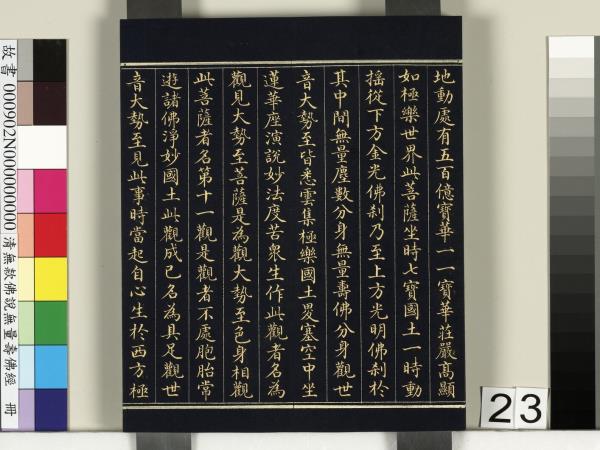 地動處有五百億寶華一一寶華莊嚴高顯
如極樂世界此菩薩坐時七寶國土一時動
搖從下方金光佛刹乃至上方光明佛刹於
其中間無量塵數分身無量壽佛分身觀世
音大勢至皆悉雲集極樂國土畟塞空中坐
蓮華座演說妙法度苦衆生作此觀者名為
觀見大勢至菩薩是為觀大勢至色身相觀
此菩薩者名第十一觀是觀者不處胞胎常
遊諸佛淨妙國土此觀成已名為具足觀世
音大勢至見此事時當起自心生於西方極
故書 000902N000000000 清無款佛說無量壽佛經 冊
23